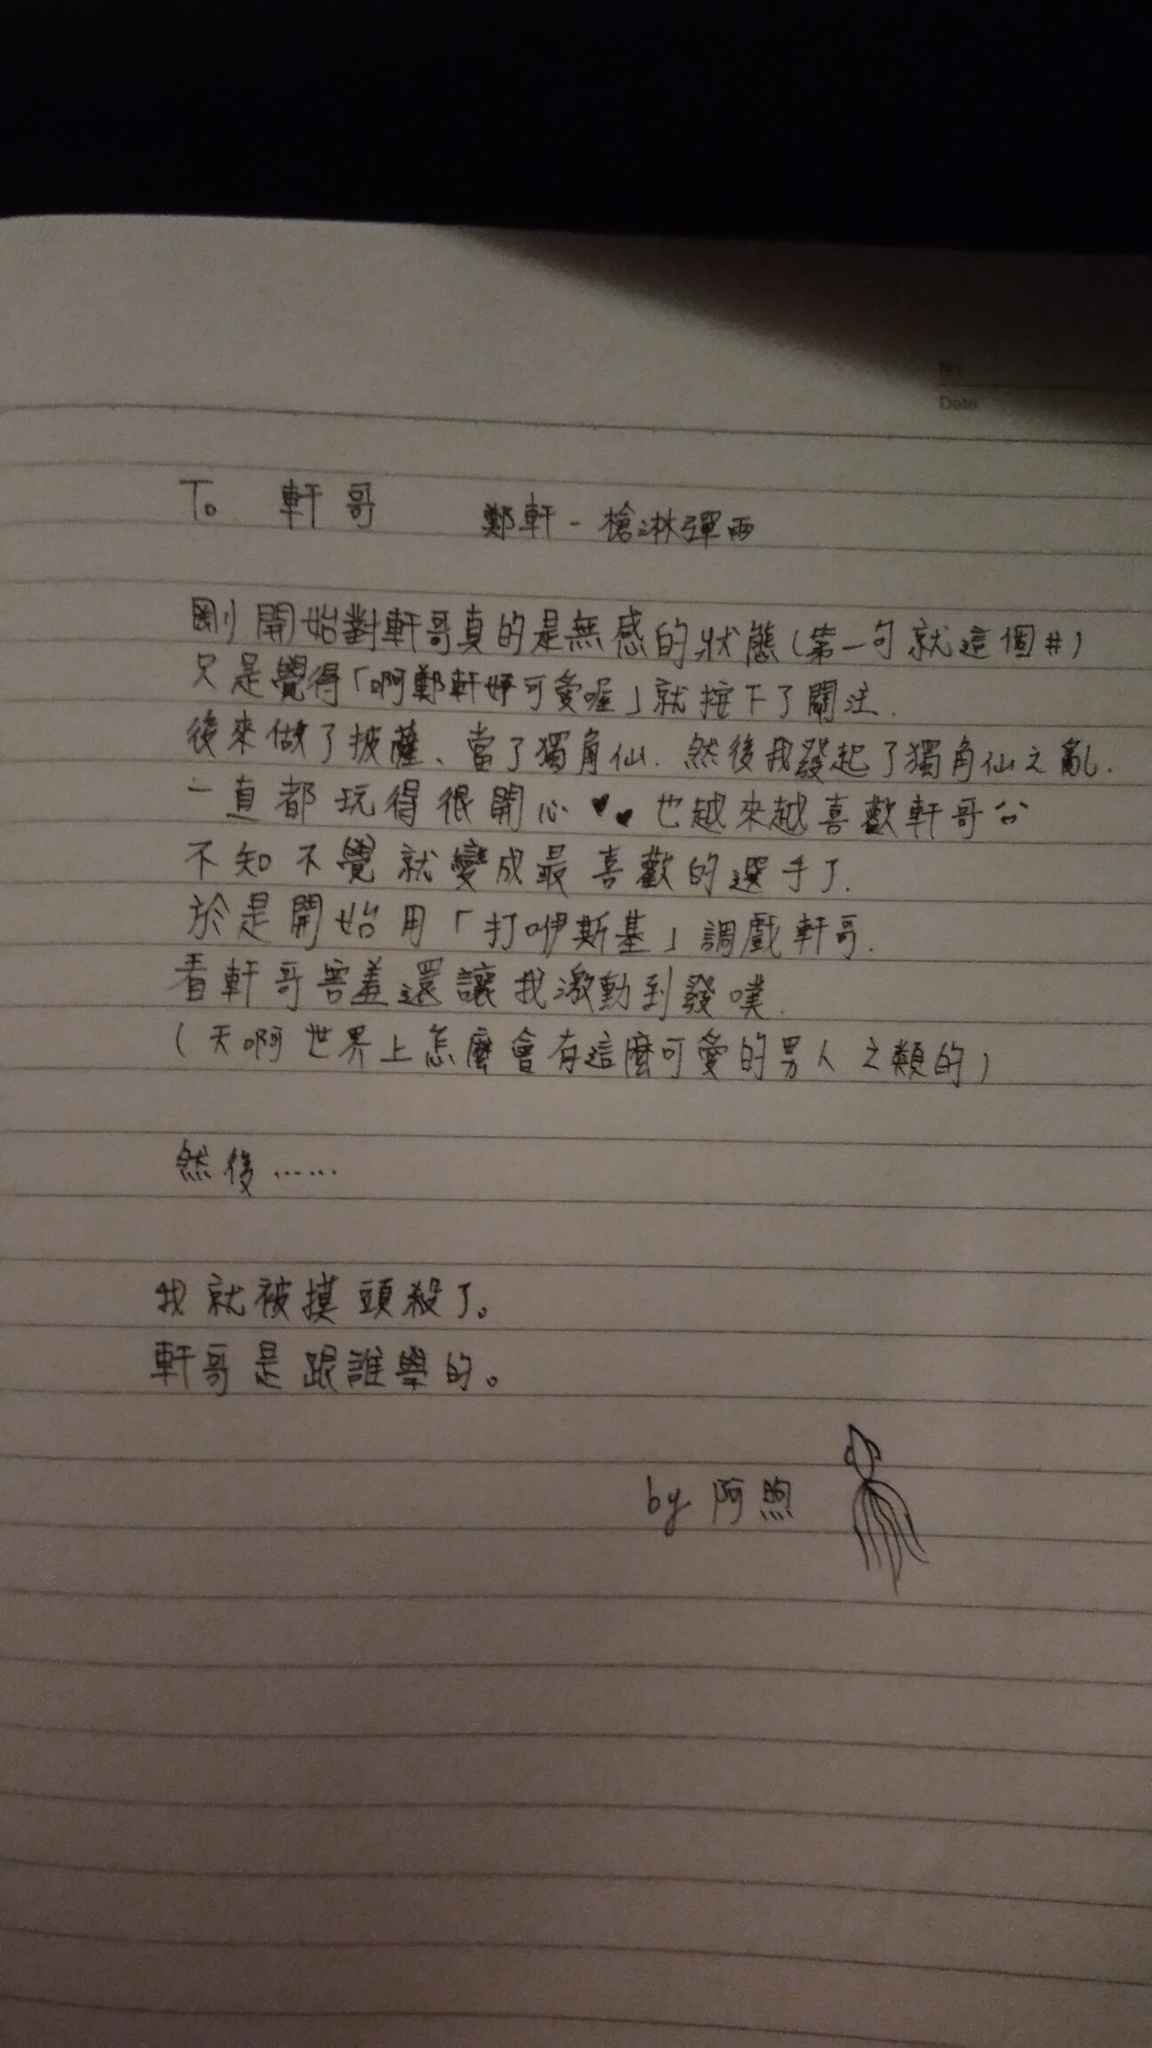 Date
To 軒哥 鄭軒-槍淋彈雨
剛開始對軒哥真的是無感的狀態(第一句就這個#)
只是覺得「啊鄭軒好可愛喔」就按下了關注.
後來做了披薩、當了獨角仙.然後我發起了獨角仙之亂.
一直都玩得很開心♥♥也越來越喜歡軒哥
不知不覺就變成最喜歡的選手了.
於是開始用「打咿斯基」調戲軒哥.
看軒哥害羞還讓我激動到發噗.
(天啊世界上怎麼會有這麼可愛的男人之類的)
然後……
我就被摸頭殺了。
軒哥是跟誰學的。
by 阿煦